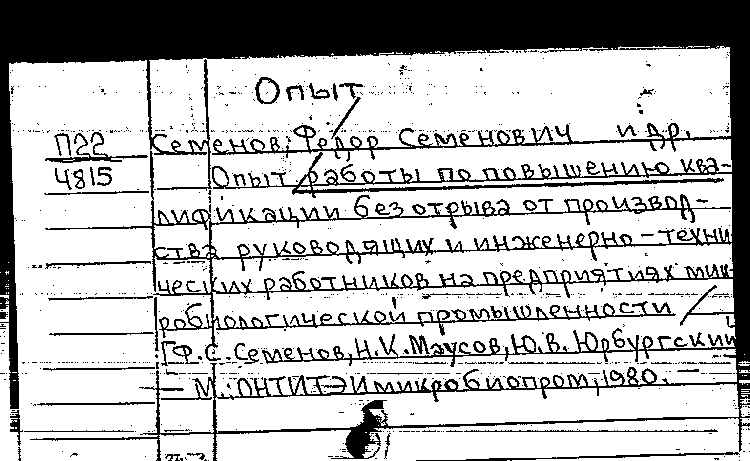 Опыт
П22 Семенов, Федор Семенович и др.
4815 Опыт работы по повышению ква-
лификации без отрыва от производ-
ства руководящих и инженерно-техни
ческих работников на предприятиях мик-
робиологической промышленности /
[Ф.С. Семенов, Н.К. Маусов, Ю.В. Юрбургский
— М.: ОНТИТЭИмикробиопром, 1980. —